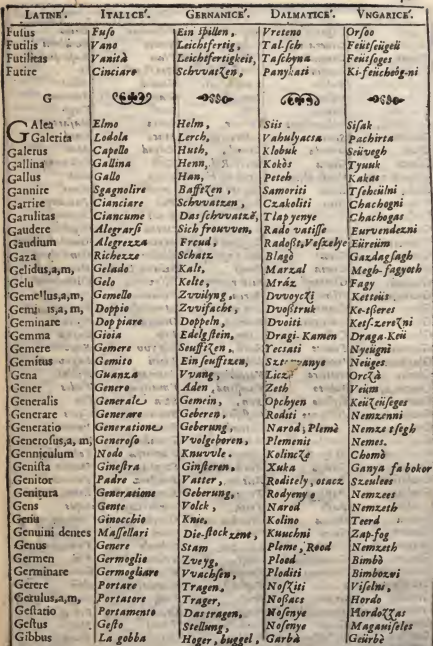 LATINE. ITALICE. GERMANICE. DALMATICE. VNGARICE.
Fusus Fuso Ein spillen, Vreteno Orsoo
Futilis Vano Leichtfertig, Tal.sch Feütseügeü
Futilitas Vanità Leichtfertigkeit, Taschyna Feütsoges
Futire Cinciare Schvvatzen, Panykati Ki-feücheög-ni
G
GAlea Elmo Helm, Siis Sisak
Galerita Lodola Lerch, Vahulyacta Pachirta
Galerus Capello Huth, Klobuk Seüvegh
Gallina Gallina Henn, Kokòs Tyuuk
Gallus Gallo Han, Peteh Kakas
Gannire Sgagnolire Baffezen, Samoriti Tsehcülni
Garrire Cianciare Schvvatzen, Czakoliti Chachogni
Garulitas Ciancume Das schvvatzẽ, Tlapyenye Chachogas
Gaudere Alegrarsi Sich frouvven, Rado vatisse Eurvendezni
Gaudium Alegrezza Freud, Radoßt, Veszelye Eüreüm
Gaza Richezze Schatz Blagò Gazdagsagh
Gelidus,a,m, Gelado Kalt, Marzal Megh-fagyoth
Gelu Gelo Kelte, Mráz Fagy
Gemellus,a,m, Gemello Zvvilyng, Dvvoyczi Kettoüs
Gemi us,a,m, Doppio Zvvifacht, Dvoßtruk Ke-tßeres
Geminare Doppiare Doppeln, Dvoiti Ketsz-zerezni
Gemma Gioia Edelgstein, Dragi-Kamen Draga-Keü
Gemere Gemere Seuffizen, Tectati Nyeügni
Gemitus Gemito Ein seuffizen, Neüges
Gena Guanza Vvang, Licze Orcza
Gener Genero Aden, Zeth Veüm
Generalis Generale Gemein, Opchyen Keüzeüseges
Generare Generare Geberen, Roditi Nemzenni
Generatio Generatione Geberung, Narod, Plemè Nemzetsegh
Generosus,a, m, Generoso Vvolgeboren, Plemenit Nemes.
Genniculum Nodo Knuvvle. Kolincze Chomò
Genista Ginestra Ginsteren, Xuka Ganya fa bokor
Genitor Padre Vatter, Roditely, otacz Szeulees
Genitura Generatione Geberung, Rodyenyo Nemzees
Gens Gente Volck, Narod Nemzeth
Genu Ginocchio Knie, Kolino Teerd
Genuini dentes Massellari Die-stockzent, Kuuchni Zap-fog
Genus Genere Stam Pleme, Rood Nemzeth
Germen Germoglio Zveyg, Plood Bimbò
Germinare Germogliare Vvachsen, Ploditi Bimbozni
Gerere Portare Tragen, Noszìti Viselni,
Gerulus,a,m, Portatore Trager, Noßacs Hordo
Gestatio Portamento Das tragen, Nosenye Hordozzas
Gestus Gesto Stellung, Nosenye Magauiseles
Gibbus La gobba Hoger, buggel, Garbà Geürbè